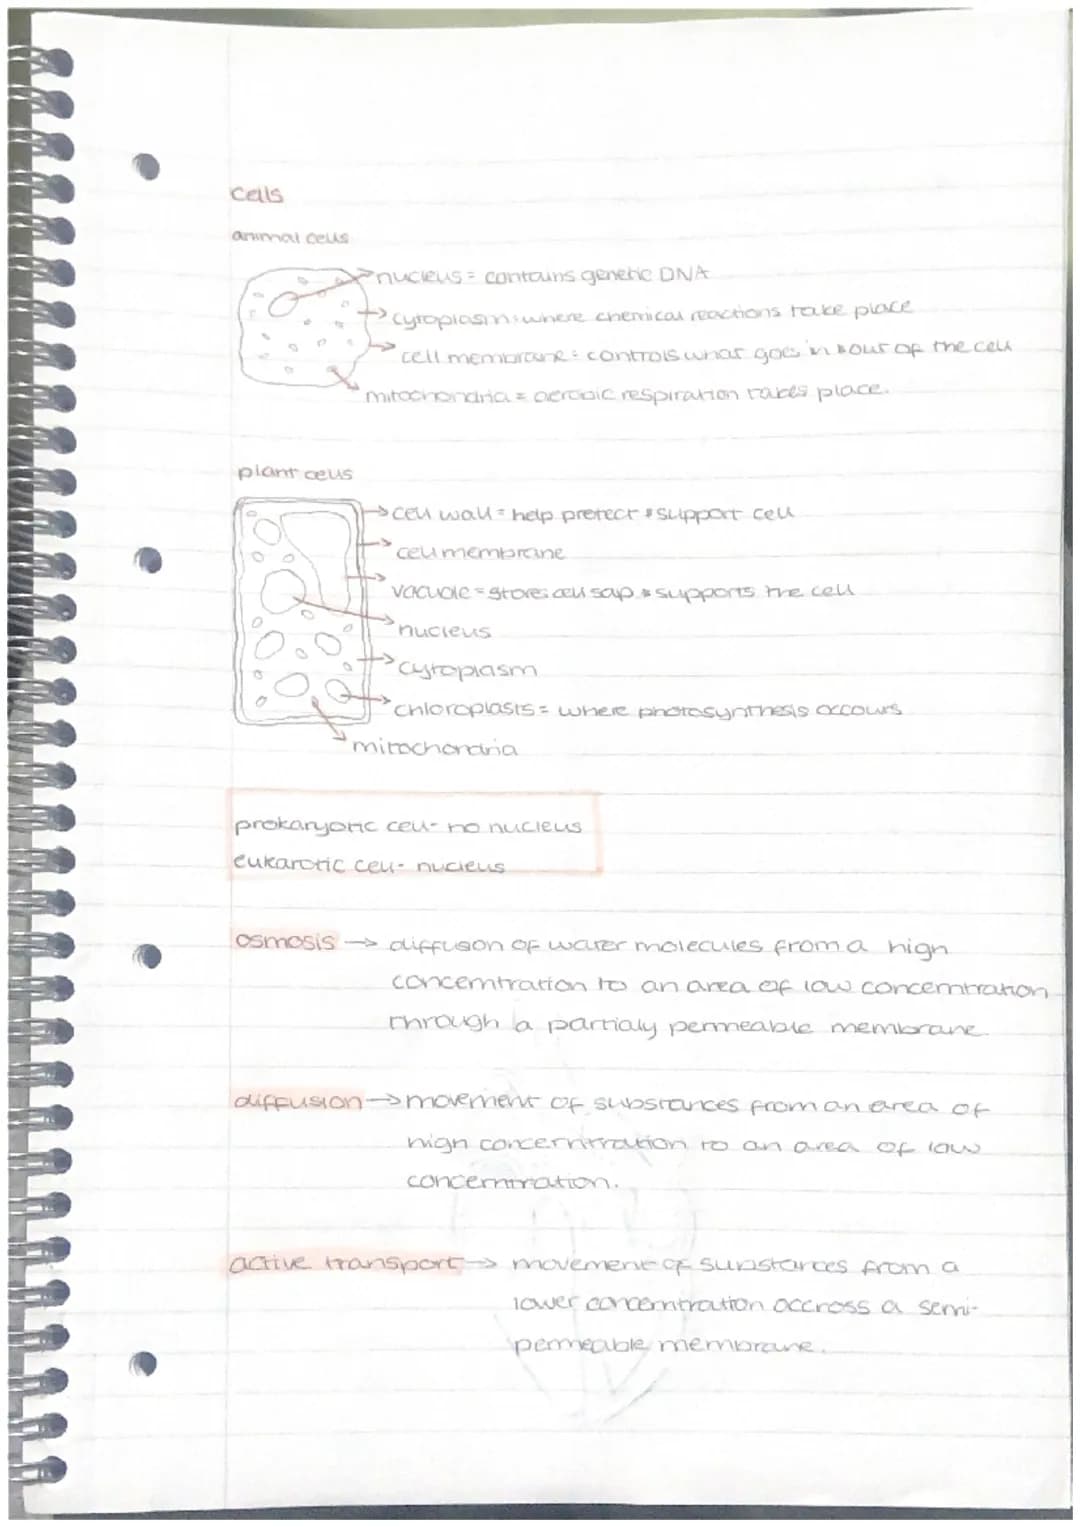 cells
animal cells
nucleus = contains genetic DNA
cytoplasm: where chemical reactions take place
cell membrane: controls what goes in & out of the cell
mitochondria = aerobic respiration takes place.
plant cells
cell wall = help pretect & support cell
cell membrane
vacuole = stores cell sap & supports the cell
nucleus
cytoplasm
chloroplasts = where photosynthesis occours
mitochondria
prokaryotic cell- no nucleus
eukarotic cell- nucleus
osmosis → diffusion of water molecules from a high
concemtration to an area of low concemtration
through a partialy permeable membrane.
diffusion → movement of substances from an area of
high concerntration to an area of low
concerntration.
active transport → movement of substances from a
lower concerntration accross a semi-
permeable membrane.